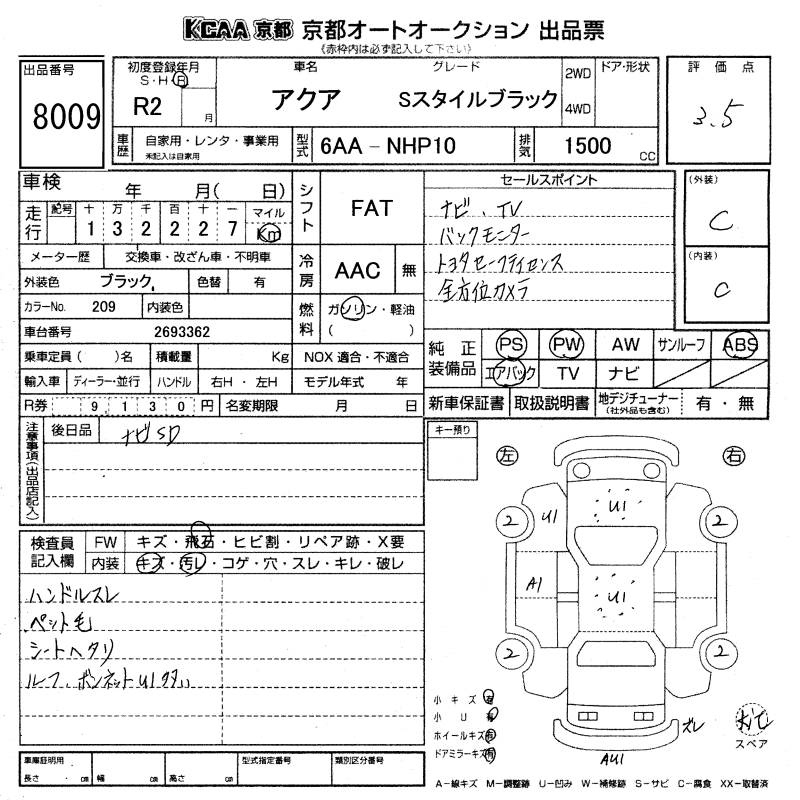 KCAA 京都 京都オートオークション 出品票
《赤枠内は必ず記入して下さい》
出品番号
8009
初度登録年月
S・H・R
R2
月
車名
アクア
グレード
Sスタイルブラック
2WD
4WD
ドア・形状
評価点
3.5
車歴
自家用・レンタ・事業用
未記入は自家用
型式
6AA－NHP10
排気
1500 CC
車検 年 月( 日)
走行
記号
十 万 千 百 十 一
1 3 2 2 2 7
マイル
Km
メーター歴
交換車・改ざん車・不明車
外装色
ブラック
色替
有
カラーNo.
209
内装色
車台番号
2693362
乗車定員( )名
積載量
Kg
輸入車
ディーラー・並行
ハンドル
右H・左H
R券
9 1 3 0 円
名変期限 月 日
シフト
FAT
冷房
AAC
無
燃料
ガソリン・軽油
( )
NOX 適合・不適合
モデル年式 年
セールスポイント
ナビ、TV
バックモニター
トヨタセーフティセンス
全方位カメラ
(外装)
C
(内装)
C
純正装備品
PS
PW
AW
サンルーフ
ABS
エアバック
TV
ナビ
新車保証書
取扱説明書
地デジチューナー
(社外品も含む)
有・無
注意事項(出品店記入)
後日品
ナビSD
キー預り
左
右
検査員記入欄
FW
キズ・飛石・ヒビ割・リペア跡・X要
内装
キズ・汚レ・コゲ・穴・スレ・キレ・破レ
ハンドルスレ
ペット毛
シートヘタリ
ルーフ、ボンネットU1多い
2
2
U1
U1
A1
U1
2
2
小キズ 有
小U 有
ホイールキズ 有
ドアミラーキズ 有
AU1
ズレ
スペア
車庫証明用
長さ ． cm
幅 cm
高さ cm
型式指定番号
類別区分番号
A－線キズ M－調整跡 U－凹み W－補修跡 S－サビ C－腐食 XX－取替済